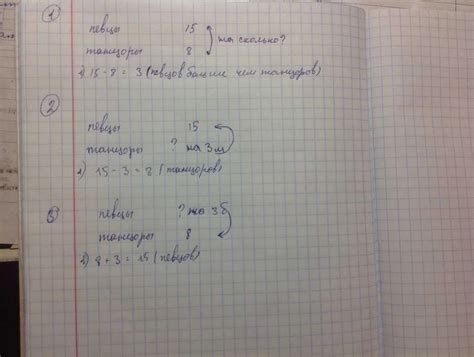 1
певцы 15
танцоры 8 на сколько?
1) 15 - 8 = 3 (певцов больше чем танцоров)
2
певцы 15
танцоры ? на 3 м
1) 15 - 3 = 8 (танцоров)
3
певцы ? на 3б
танцоры 8
1) 8 + 3 = 15 (певцов)